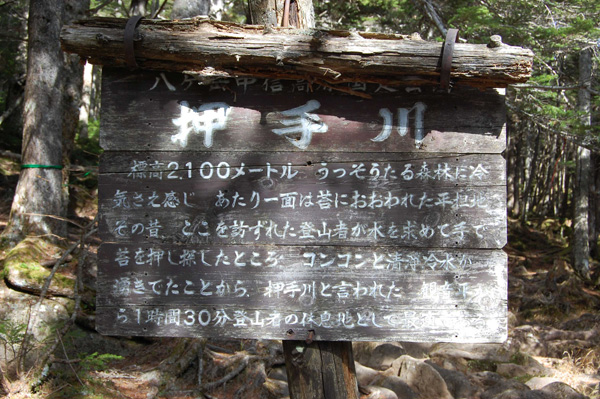 八ヶ岳中信高原国定公園
押手川
標高2.100メートル うっそうたる森林に冷
気さえ感じ あたり一面は苔におおわれた平坦地
その昔、ここを訪ずれた登山者が水を求めて手で
苔を押し探したところ コンコンと清浄冷水が
湧きでたことから、押手川と言われた 観音下か
ら1時間30分登山者の休息地として最適